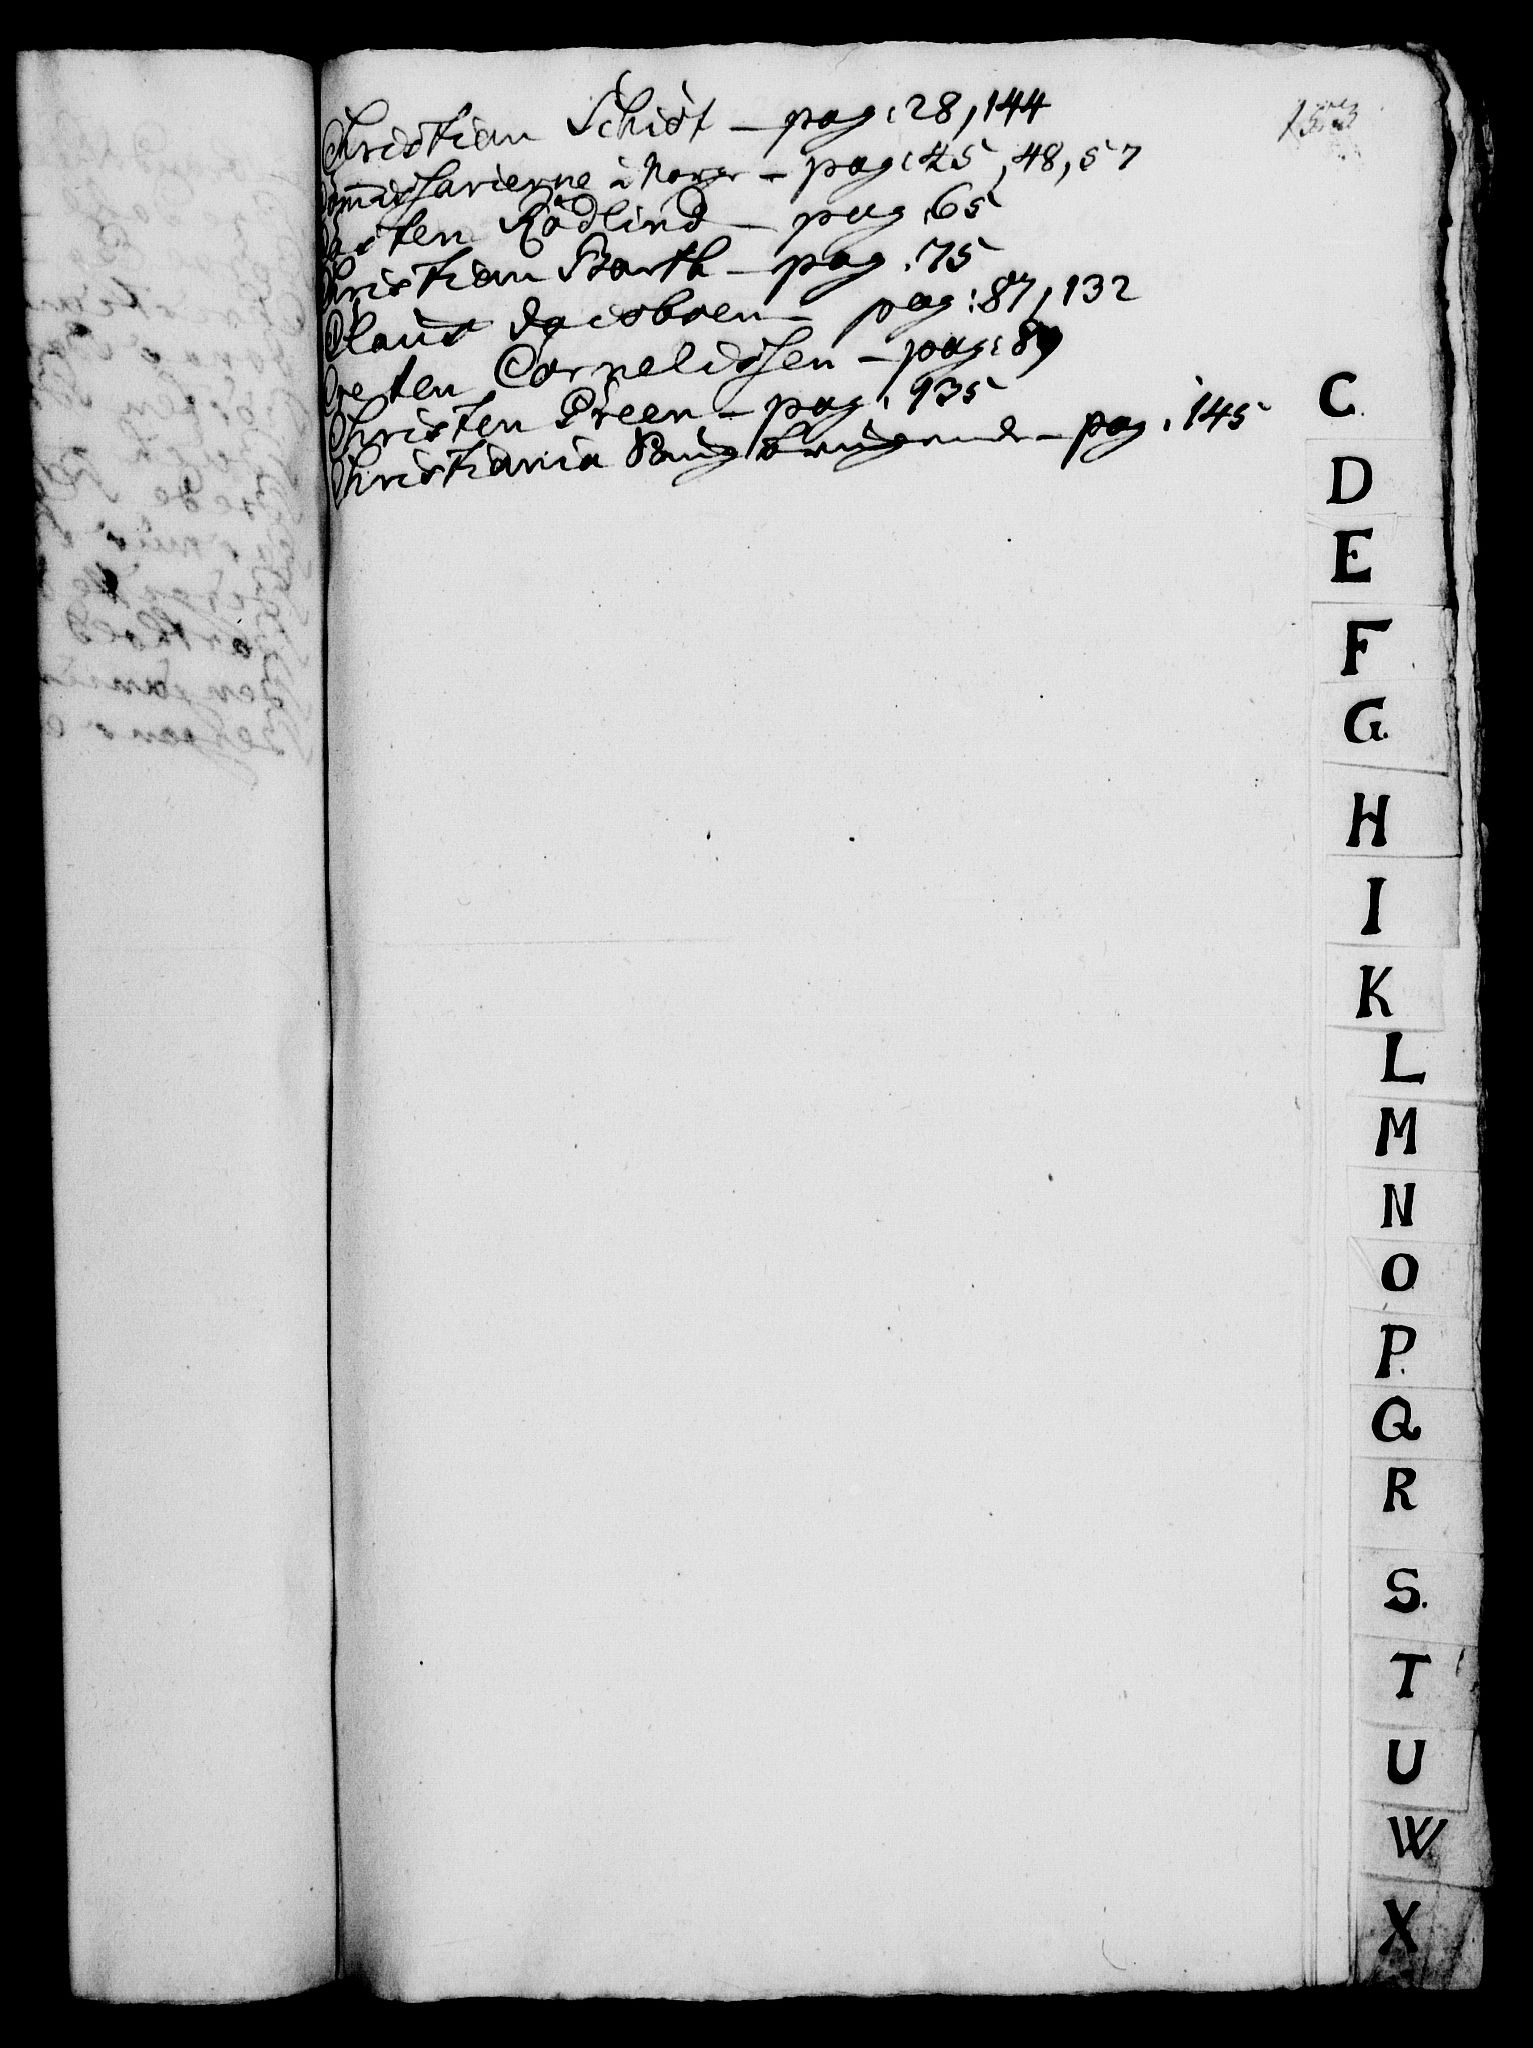 Christian Schiöt – pag: 28, 144
Commissarierne i Norge – pag: 45, 48, 57
Carsten Rödlind – pag. 65
Christian Barth – pag. 75
Claus Jacobsen – pag: 87, 132
Cresten Cornelissen – pag: 89
Christen Preen – pag. 135
Christiania – pag. 145
C.
D
E
F
G.
H
I
K
L
M
N
O
P.
Q
R
S.
T
U
W
X